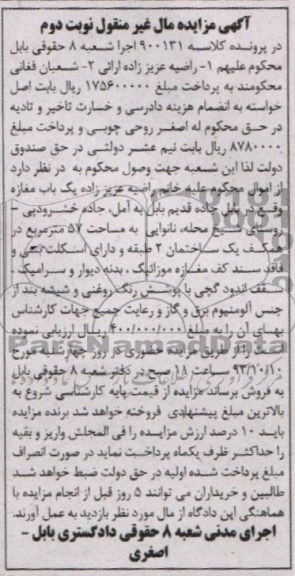 آگهی مزایده مال غیر منقول نوبت دوم
در پرونده کلاسه ۹۰۰۱۳۱ اجرا شعبه ۸ حقوقی بابل
محکوم علیهم ۱- راضیه عزیز زاده ارائی ۲- شعبان فغانی
محکومند به پرداخت مبلغ ۱۷۵۶۰۰۰۰۰ ریال بابت اصل
خواسته به انضمام هزینه دادرسی و خسارت تاخیر و تادیه
در حق محکوم له اصغر روحی چوبی و پرداخت مبلغ
۸۷۸۰۰۰۰ ریال بابت نیم عشر دولتی در حق صندوق
دولت لذا این شعبه جهت وصول محکوم به در نظر دارد
از اموال محکوم علیه خانم راضیه عزیز زاده یک باب مغازه
وقع در بابل جاده قدیم بابل به آمل، جاده خشرودپی -
روستای شیخ محله، نانوایی به مساحت ۵۷ مترمربع در
همکف یک ساختمان ۲ طبقه و دارای اسکلت بتنی و
فاقد سند کف مغازه موزائیک، بدنه دیوار و سرامیک و
سقف اندود گچی با پوشش رنگ روغنی و شیشه بند از
جنس آلومنیوم برق و گاز و رعایت جمیع جهات کارشناس
بهای آن را به مبلغ ۴۰۰/۰۰۰/۰۰۰ ریال ارزیابی نموده
است را از طریق مزایده حضوری در روز چهارشنبه مورخ
۹۳/۱۰/۱۰ ساعت ۱۱ صبح در دفتر شعبه ۸ حقوقی بابل
به فروش برساند مزایده از قیمت پایه کارشناسی شروع به
بالاترین مبلغ پیشنهادی فروخته خواهد شد برنده مزایده
باید ۱۰ درصد ارزش مزایده را فی المجلس واریز و بقیه
را حداکثر ظرف یکماه پرداخت نماید در صورت انصراف
مبلغ پرداخت شده اولیه در حق دولت ضبط خواهد شد
طالبین و خریداران می توانند ۵ روز قبل از انجام مزایده با
هماهنگی این دادگاه از مال مورد نظر بازدید به عمل آورند.
اجرای مدنی شعبه ۸ حقوقی دادگستری بابل -
اصغری
ParsNamadData